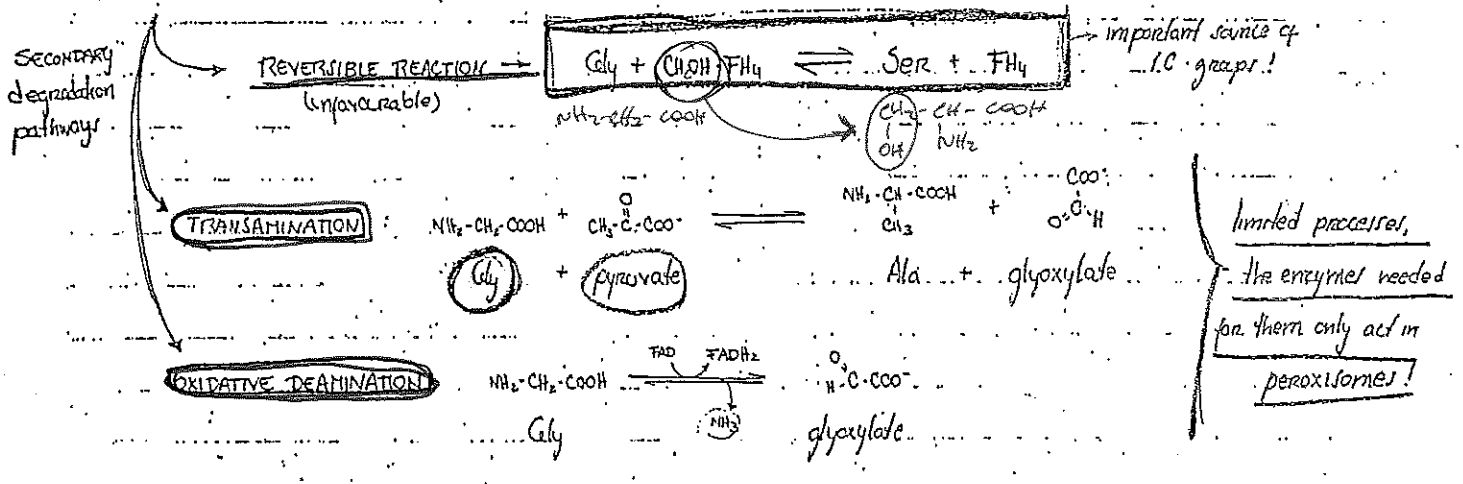 SECONDARY
degradation
pathways
REVERSIBLE REACTION →
(unfavourable)
Gly + CH2OH·FH4 ⇌ Ser + FH4
→ important source of
1C·groups!
NH2-CH2-COOH
CH2-CH-COOH
OH NH2
TRANSAMINATION
NH2-CH2-COOH + CH3-C-COO- ⇌ NH2-CH-COOH +
O
CH3
COO-
O=C-H
Gly + pyruvate
Ala + glyoxylate
limited processes,
the enzymes needed
for them only act in
peroxisomes!
OXIDATIVE DEAMINATION
FAD FADH2
NH2-CH2-COOH
NH3
O
H C-COO-
Gly glyoxylate